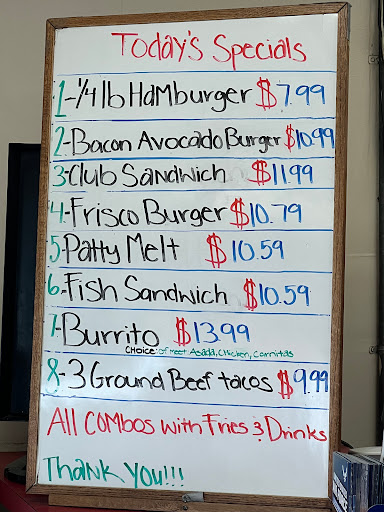 Today's Specials
1-1/4 lb Hamburger $7.99
2-Bacon Avocado Burger $10.99
3-Club Sandwich $11.99
4-Frisco Burger $10.79
5-Patty Melt $10.59
6-Fish Sandwich $10.59
7-Burrito $13.99
CHOICE: of meet: Asada, Chicken, Carnitas
8-3 Ground Beef tacos $9.99
All Combos with Fries & Drinks
Thank You!!!